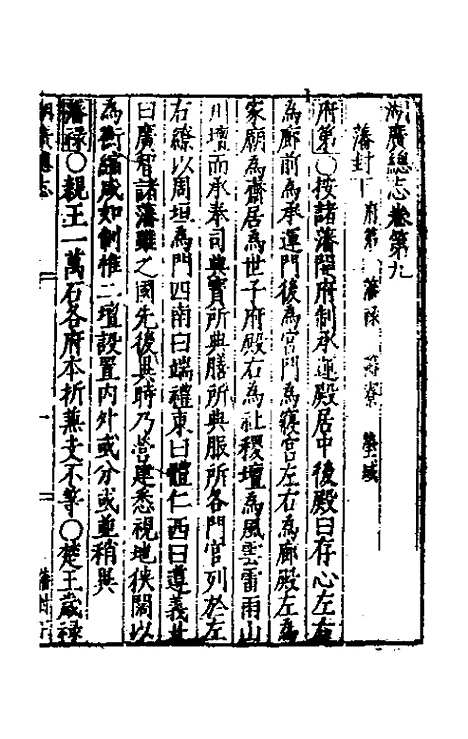 湖廣總志卷第九
藩封下 府第 藩祿 塋域
府第○按諸藩開府制承運殿居中後殿曰存心左右
為廊前為承運門後為宮門為寢宮左右為廊殿左為
家廟為齋居為世子府殿右為社稷壇為風雲雷雨山
川壇而承奉司典寶所典膳所典服所各門官列於左
右繚以周垣為門四南曰端禮東曰體仁西曰遵義北
曰廣智諸藩雖之國先後異時乃營建悉視地狹闊以
為衡縮咸如制惟二壇設置内外或分或並稍異
藩祿○親王一萬石各府本折兼支不等○楚王歲祿
湖廣總志